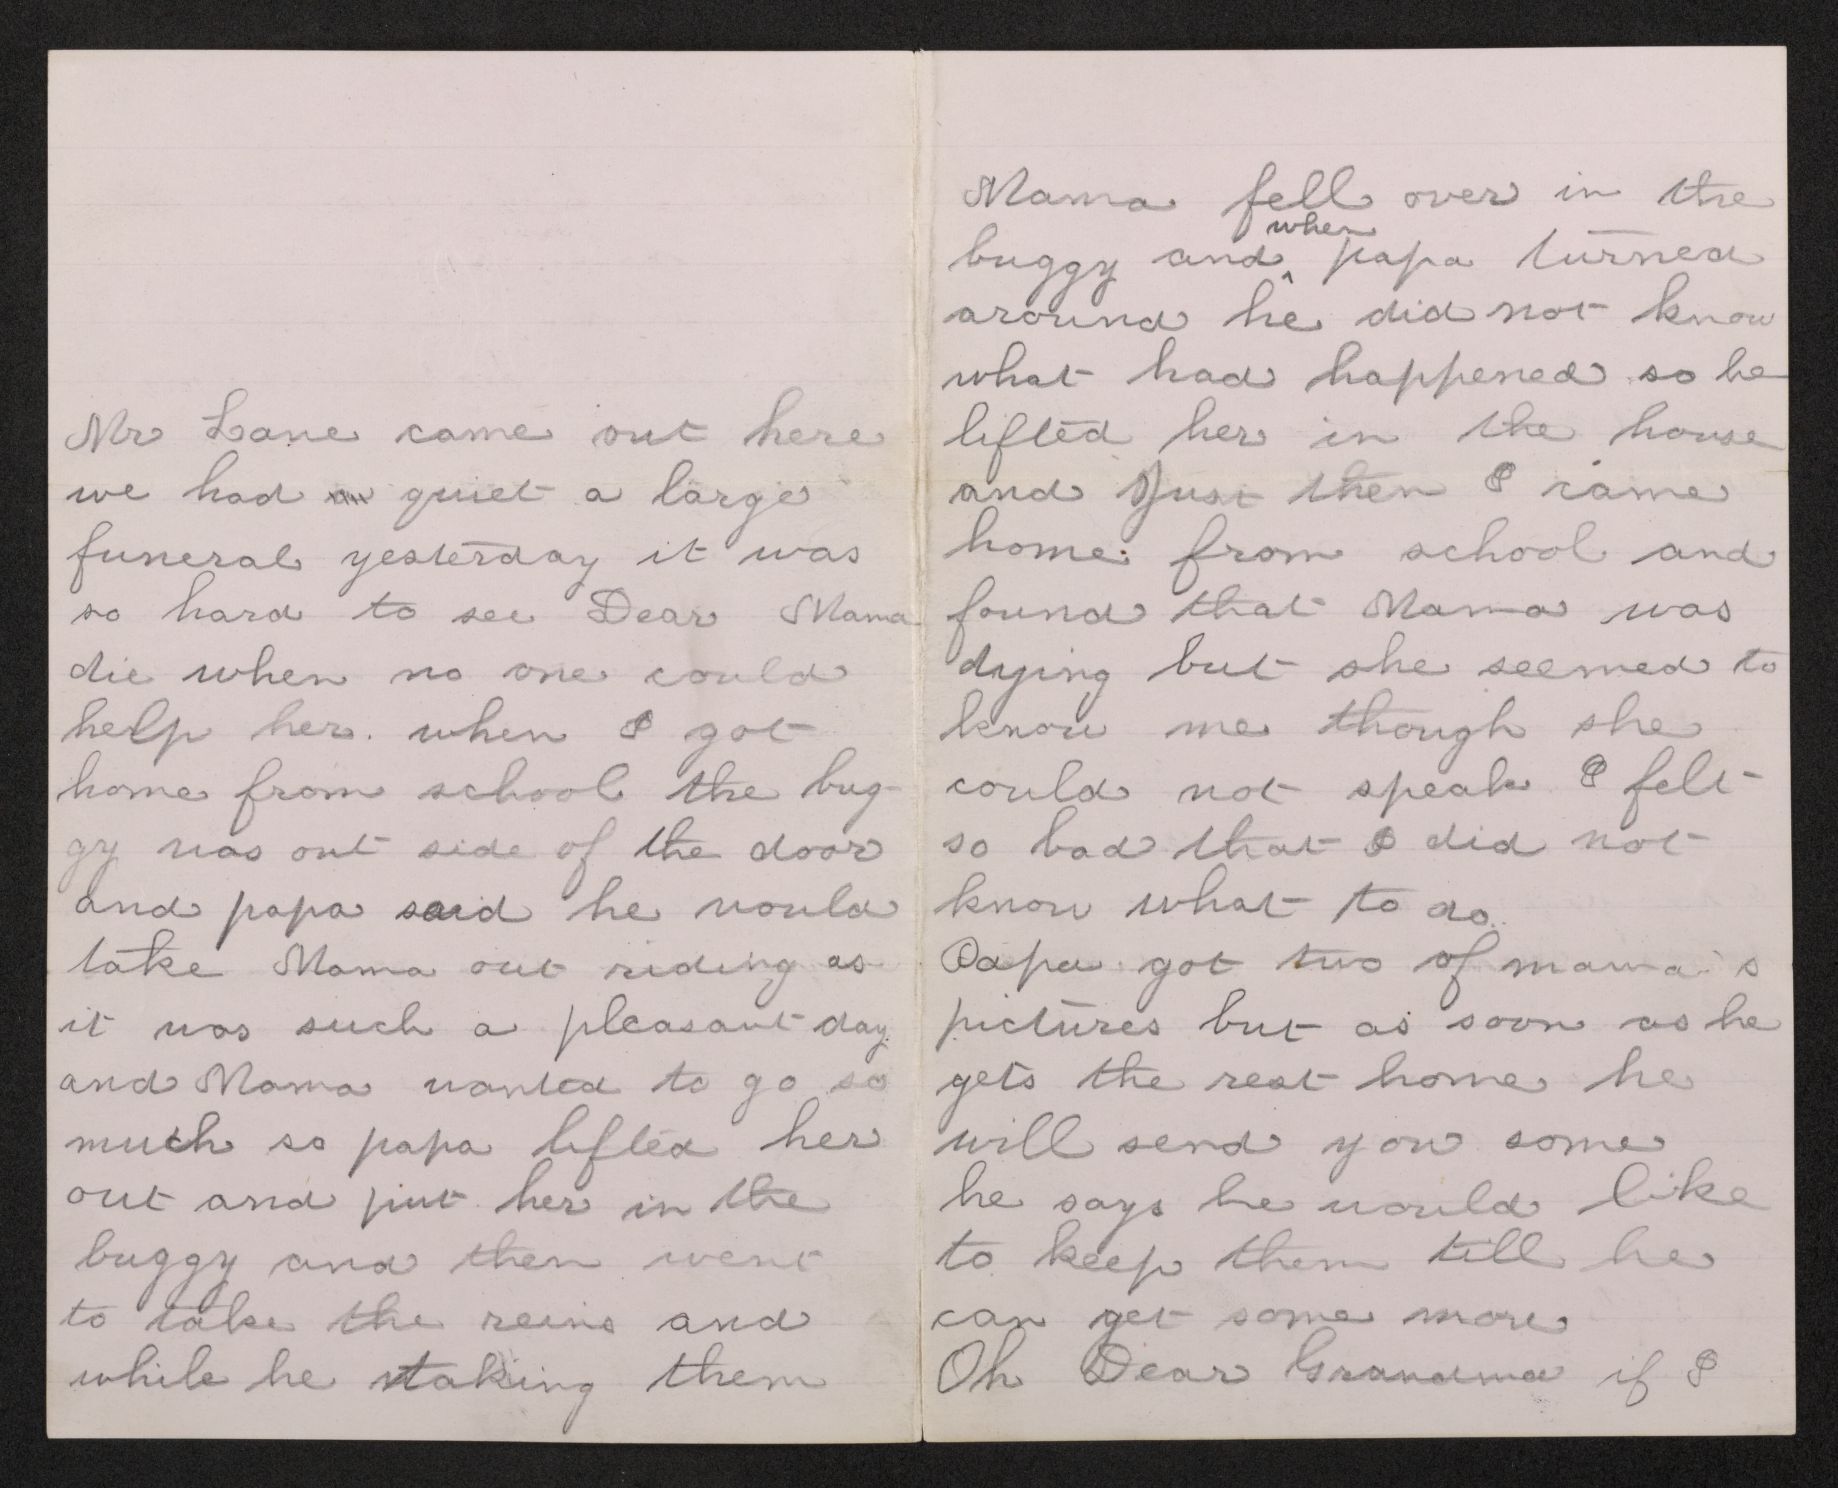 Mr Lane came out here
we had an quiet a large
funeral yesterday it was
so hard to see Dear Mama
die when no one could
help her. when I got
home from school the bug-
gy was out side of the door
and papa said he would
take Mama out riding as
it was such a pleasant day.
and Mama wanted to go so
much so papa lifted her
out and put her in the
buggy and then went
to take the reins and
while he taking them
Mama fell over in the
buggy and when papa turned
around he did not know
what had happened so he
lifted her in the house
and Just then I came
home from school and
found that Mama was
dying but she seemed to
know me though she
could not speak I felt
so bad that I did not
know what to do.
Papa got two of mama's
pictures but as soon as he
gets the rest home he
will send you some
he says he would like
to keep them till he
can get some more
Oh Dear Grandma if I